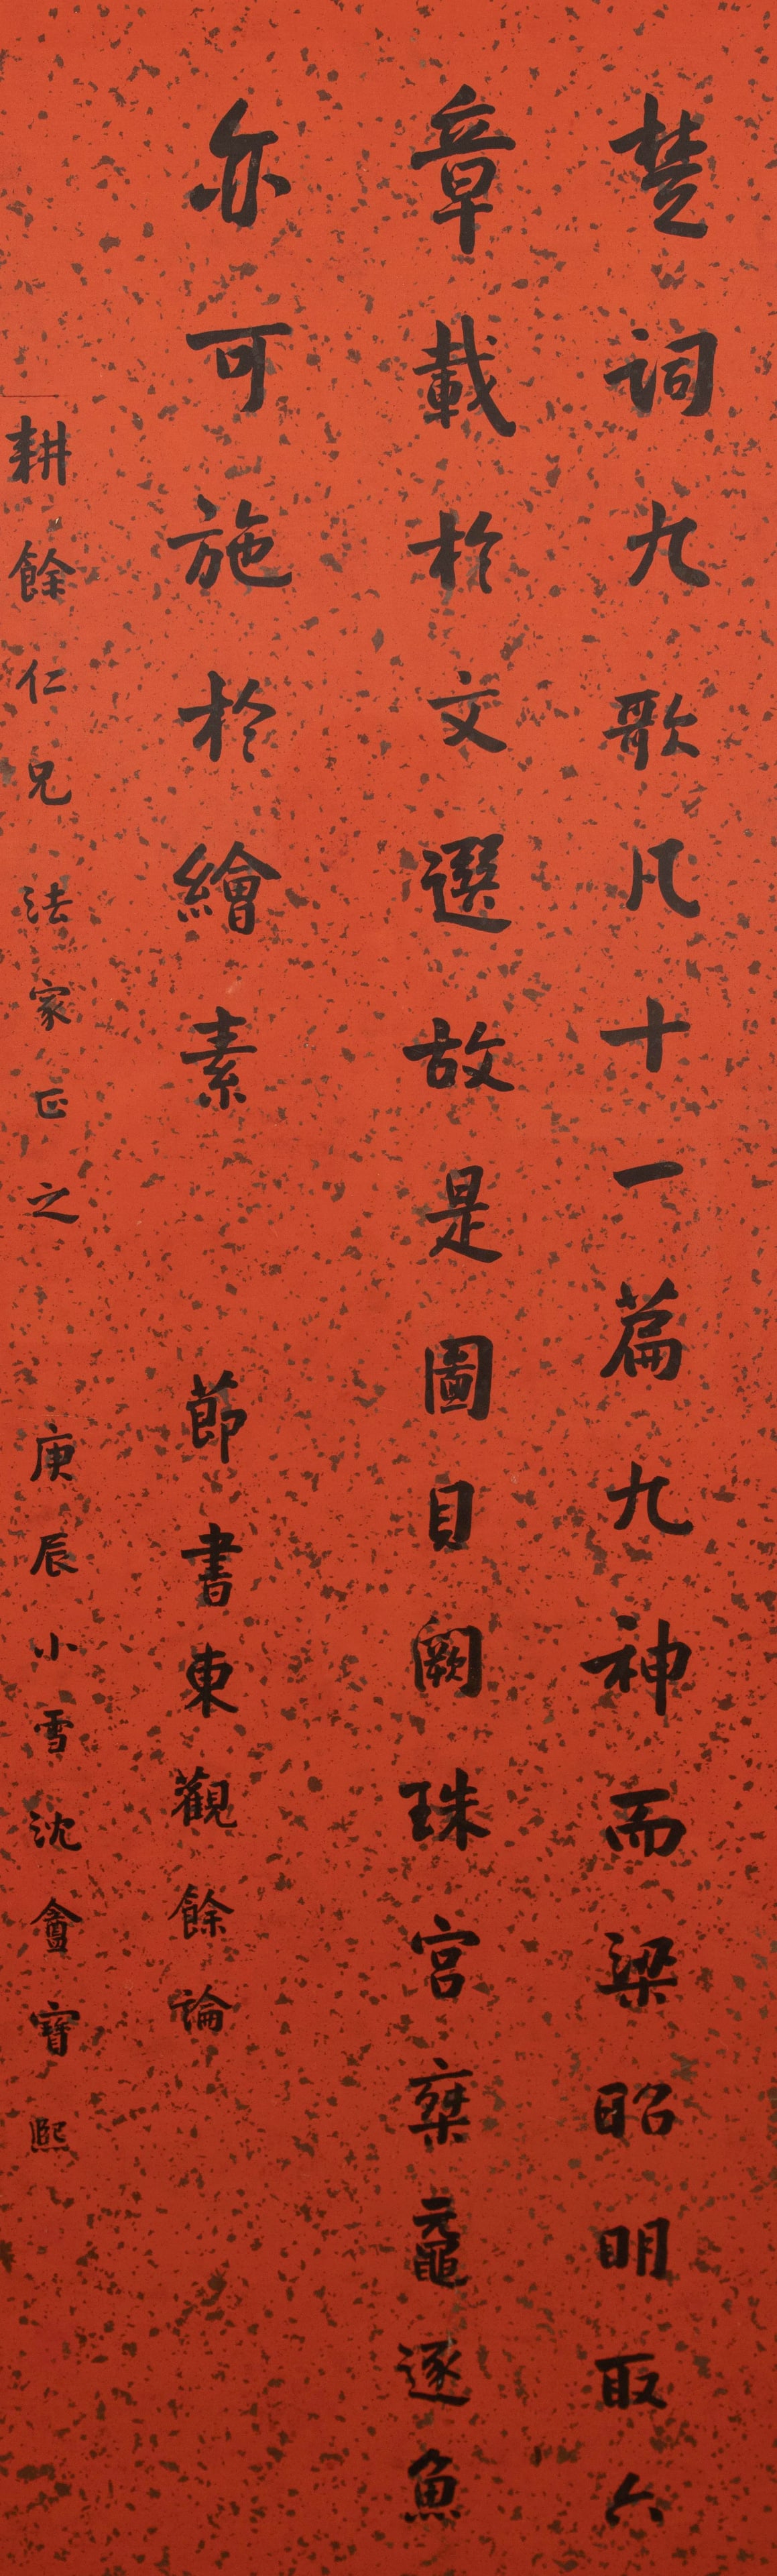 楚詞九歌凡十一篇九神而梁昭明取六
章載於文選故是圖貝闕珠宮椉黿逐魚
亦可施於繪素 節書東觀餘論
耕餘仁兄法家正之 庚辰小雪沈盦寶熙